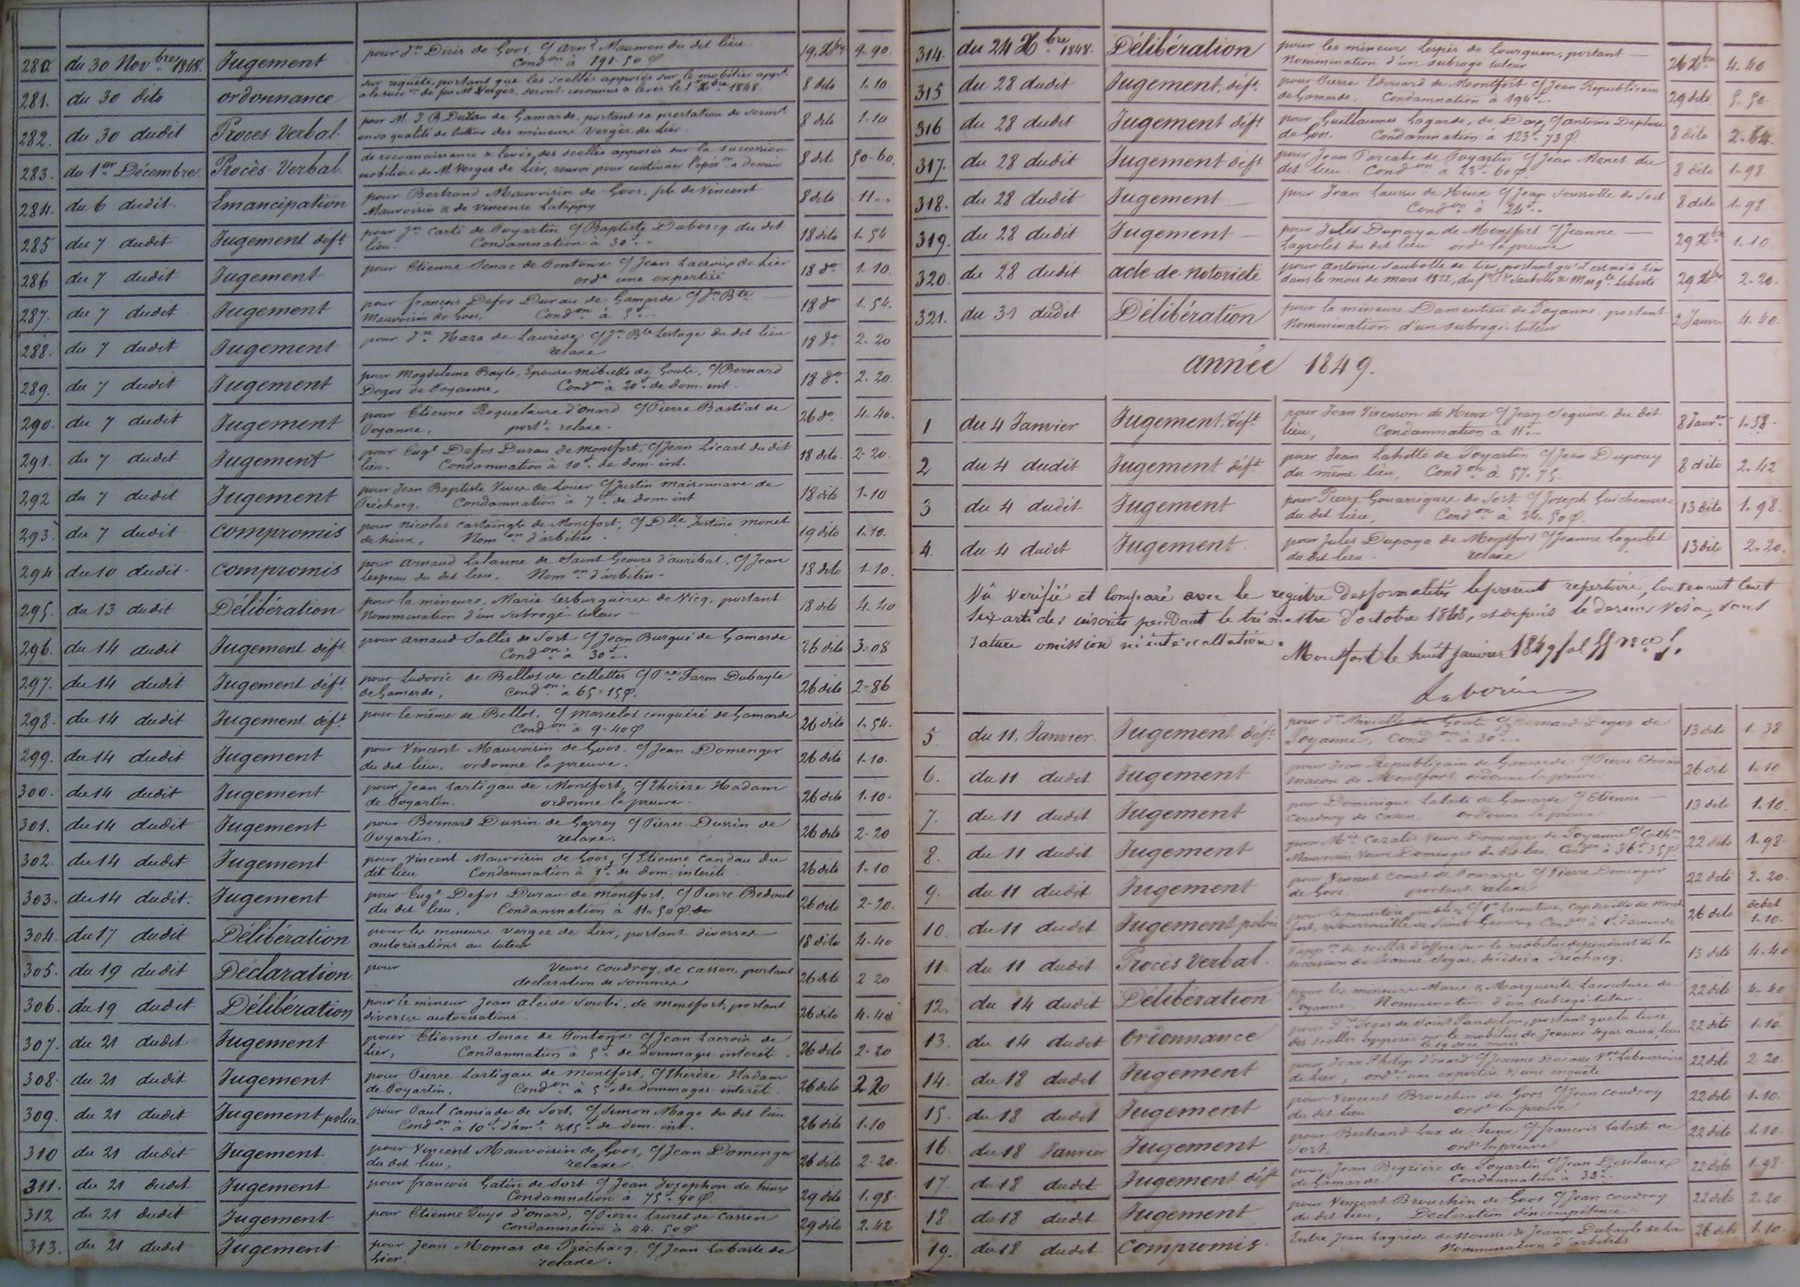 280. du 30 Nov.bre 1848. Jugement pour J.n Diris de Goos, c/ Arn.d Maumen du dit lieu. 19 Xbre 9-90.
Cond.on à 191-50
281. du 30 dito ordonnance sur requête, portant que les scellés apposés sur le mobilier 8 dito 1-10
Verges, seront reconnus & levés le 1er Xbre 1848.
282. du 30 dudit Procès Verbal. pour M. J. B. Duzan de Gamarde, portant sa prestation de serm.t 8 dito 1-10
en sa qualité de tuteur des mineurs Verges de Lier.
283. du 1er Décembre Procès Verbal de reconnaissance & levée des scellés apposés sur la succession 8 dito 50-60.
mobilière de M. Verges de Lier, renvoi pour continuer l'opé.on à demain
284. du 6 dudit. Emancipation pour Bertrand Mauvoisin de Goos, fils de Vincent 8 dito 11--
Mauvoisin & de Vincente Latappy
285 du 7 dudit Jugement déf.t pour J.n Carti de Poyartin c/ Baptiste Duboscq du dit 18 dito 1-54
lieu. Condamnation à 30f--
286 du 7 dudit Jugement pour Etienne Senac de Pontonx c/ Jean Lacroix de Lier 18 do 1-10.
ord.e une expertise
287. du 7 dudit Jugement pour françois Defos Durau de Gamarde c/ J.n B.te 18 do 1-54.
Mauvoisin de Goos, Cond.on à 5f--
288. du 7 dudit Jugement pour J.n Haza de Laurède, c/ J.n B.te du dit lieu 18 do 2-20
relaxe
289. du 7 dudit Jugement pour Magdeleine Bayle, épouse Mibielle de Goutz, c/ Bernard 18 do 2-20.
Degos de Poyanne, Cond.on à 20f de dom. int.
290. du 7 dudit Jugement pour Etienne Roquelaure d'onard c/ Pierre Bastiat de 26 do 4-40.
Poyanne, port.t relaxe.
291. du 7 dudit Jugement pour Eug.e Defos Durau de Montfort, c/ Jean Licart du dit 18 dito. 2-20.
lieu. Condamnation à 10f de dom. int.
292 du 7 dudit Jugement pour Jean Baptiste Vives de Louer c/ Justin Maisonnave de 18 dito 1-10
Préchacq. Condamnation à 7f de dom. int
293. du 7 dudit. compromis pour Nicolas Castaingts de Montfort, c/ Dlle Justine Monet 19 dito 1-10.
de hinx, Nom.on d'arbitres.
294 du 10 dudit. compromis pour Arnaud Lalanne de Saint Geours d'auribat, c/ Jean 18 dito 1-10.
Lespeau du dit lieu, Nom.on d'arbitres
295. du 13 dudit Délibération pour la mineure, Marie Lesburguères de Vicq, portant 18 dito 4-40
Nommination d'un subrogé tuteur
296. du 14 dudit Jugement déf.t pour arnaud Sallis de Sort c/ Jean Burgué de Gamarde 26 dito 3-08
Cond.on à 30f--
297. du 14 dudit Jugement déf.t pour Ludovic de Bellos de cellettes c/ P.re Faron Dubayle 26 dito 2-86
de Gamarde, Cond.on à 65-15
298. du 14 dudit Jugement déf.t pour le même de Bellot, c/ Marcelot conquéré de Gamarde 26 dito 1-54.
Cond.on à 9-40
299. du 14 dudit Jugement pour Vincent Mauvoisin de Goos, c/ Jean Domenger 26 dito 1-10.
du dit lieu. ordonne la preuve.
300. du 14 dudit Jugement pour Jean Lartigau de Montfort, c/ thérèze Hadam 26 dito 1-10.
de Poyartin. ordonne la preuve.
301. du 14 dudit Jugement pour Bernard Dussin de Garrey c/ Pierre Dussin de 26 dito 2-20
Poyartin, relaxe.
302. du 14 dudit Jugement pour Vincent Mauvoisin de Goos, c/ Etienne Candau du 26 dito 1-10
dit lieu Condamnation à 1f de dom. intérêt
303. du 14 dudit. Jugement pour Eug.e Defos Durau de Montfort, c/ Pierre Bedout 26 dito 2-20.
du dit lieu. Condamnation à 11-50
304. du 17 dudit Délibération pour les mineurs Verges de Lier, portant diverses 18 dito 4-40
autorisations au tuteur
305. du 19 dudit Déclaration pour Veuve Coudroy, de cassen, portant 26 dito 2 20
déclaration de sommes
306. du 19 dudit Délibération pour le mineur Jean Alcide Soubi, de Montfort, portant 26 dito 4-40
diverses autorisations
307. du 21 dudit Jugement pour Etienne Senac de Pontonx c/ Jean Lacroix de 26 dito 2-20
Lier, Condamnation à 5f de dommages intérêt.
308. du 21 dudit Jugement pour Pierre Lartigau de Montfort, c/ thérèze Hadam 26 dito 2 20
de Poyartin, Cond.on à 5f de dommages intérêt
309. du 21 dudit Jugement police pour Paul Camiade de Sort, c/ Simon Mage du dit lieu 26 dito 1-10
Cond.on à 10f d'am.e & 15f de dom. int.
310 du 21 dudit Jugement pour Vincent Mauvoisin de Goos, c/ Jean Domenger 26 dito 2-20.
du dit lieu, relaxe.
311. du 21 dudit Jugement pour françois Gatin de Sort c/ Jean Dosephon de hinx 29 dito 1-98.
Condamnation à 75-90
312 du 21 dudit Jugement pour Etienne Puyo d'onard, c/ Pierre Lauret de Cassen 29 dito 2-42
Condamnation à 44-50
313. du 21 dudit Jugement pour Jean Momas de Préchacq, c/ Jean Labaste de
Lier. relaxe.
314. du 24 Xbre 1848. Délibération pour les mineurs Lespès de Lourquen, portant 26 Xbre 4-40
Nommination d'un subrogé tuteur
315 du 28 dudit Jugement déf.t pour Pierre Edouard de Montfort c/ Jean Republicain 29 dito 5-50.
de Gamarde. Condamnation à 194f--
316 du 28 dudit Jugement déf.t pour Guillaumes Lagarde, de Dax, c/ antoine 8 dito 2-64
de Goos. Condamnation à 123-73
317. du 28 dudit Jugement déf.t pour Jean Darcabe de Poyartin c/ Jean Menet du 8 dito 1-98
dit lieu. Cond.on à 25-60
318. du 28 dudit Jugement pour Jean Laussu de Hinx c/ Jean de Sort 8 dito 1-98
Cond.on à 25f--
319. du 28 dudit Jugement pour Jules Dupaya de Montfort c/ Jeanne 29 Xbre 1-10.
Lagrolet du dit lieu ord.e la preuve
320. du 28 dudit acte de notoriété pour Antoine Saubotte de Lier, portant qu'il est né à Lier 29 Xbre 2-20.
dans le mois de mars
321. du 31 dudit Délibération pour la mineure Damestieu de Poyanne, portant 2 Janvier 4-40.
Nommination d'un subrogé tuteur
année 1849.
1 du 4 Janvier Jugement déf.t pour Jean Vincenson de Hinx c/ Jean Seguine du dit 8 Janv.er 1-38.
lieu, Condamnation à 11f--
2 du 4 dudit Jugement déf.t pour Jean Lahitte de Poyartin c/ Jean Dupouy 8 dito 2-42
du même lieu, Cond.on à 57-75.
3 du 4 dudit Jugement pour Pierre Gouarrigues de Sort c/ Joseph Guichemerre 13 dito 1-98.
du dit lieu, Cond.on à 24-50
4. du 4 dudit Jugement. pour Jules Dupaya de Montfort c/ Jeanne Lagrolet 13 dito 2-20.
du dit lieu. relaxe
Vû vérifié et comparé avec le registre des formalités le présent répertoire, contenant cent
six articles inscrits pendant le trimestre d'octobre 1848, et depuis le dernier visa, sans
rature omission ni intercallation.
Montfort le huit janvier 1849
5. du 11. Janvier. Jugement déf.t pour J.n Mibielle de Goutz c/ Bernard Degos de 13 dito 1-38
Poyanne, Cond.on à 30f--
6. du 11 dudit Jugement pour Jean Republicain de Gamarde c/ Pierre Edouard 26 dit 1-10
maçon de Montfort ordonne la preuve
7. du 11 dudit Jugement pour Dominique Lalaste de Gamarde c/ Etienne 13 dito 1-10.
Coudroy de Cassen, ordonne la preuve
8. du 11 dudit Jugement pour M.rie Cazalis Veuve Domenger de Poyanne c/ Cath.ne 22 dito 1-98.
Mauvoisin Veuve Domenger du dit lieu, Cond.on à 36-35
9. du 11 dudit Jugement pour Vincent Comet de Pomarez c/ Pierre Domenger 22 dito 2-20.
de Goos. portant relaxe
10. du 11 dudit Jugement police pour le ministère public, c/ 26 dito débet 1-10.
de Saint Geours, Cond.on à 1f d'amende
11. du 11 dudit Procès Verbal. d'app.on de scellés d'office sur le mobilier dépendant de la 13 dito 4-40
succession de Jeanne Segas, décédée à Préchacq.
12. du 14 dudit Délibération pour les mineures Marie & Marguerite Lacouture de 22 dito 4-40
Poyanne. Nommination d'un subrogé tuteur.
13. du 14 dudit Ordonnance pour P.re Segas de Saint Pandelon, portant que la levée 22 dito 1-10
des scellés apposés sur le mobilier de Jeanne Segas aura lieu
14. du 18 dudit Jugement pour Jean Philip d'onard c/ Jeanne Ducasse V.ve 22 dito 2 20.
de Lier, ord.e une expertise & une enquête
15. du 18 dudit Jugement pour Vincent Brouchin de Goos c/ Jean Coudroy 22 dito 1-10.
du dit lieu ord.e la preuve
16. du 18 Janvier Jugement pour Bertrand Lux de hinx c/ francois Lalaste de 22 dito 1-10.
Sort, ord.e la preuve
17. du 18 dudit Jugement déf.t pour Jean Beyrière de Poyartin c/ Jean Desclaux 22 dito 1-98.
de Gamarde Condamnation à 33f--
18 du 18 dudit Jugement pour Vincent Brouchin de Goos c/ Jean Coudroy 22 dito 2-20
du dit lieu, Déclaration d'incompétence
19. du 18 dudit Compromis. Entre Jean Lagrède & Jeanne Dubayle 26 dito 1-10
Nommination d'arbitres